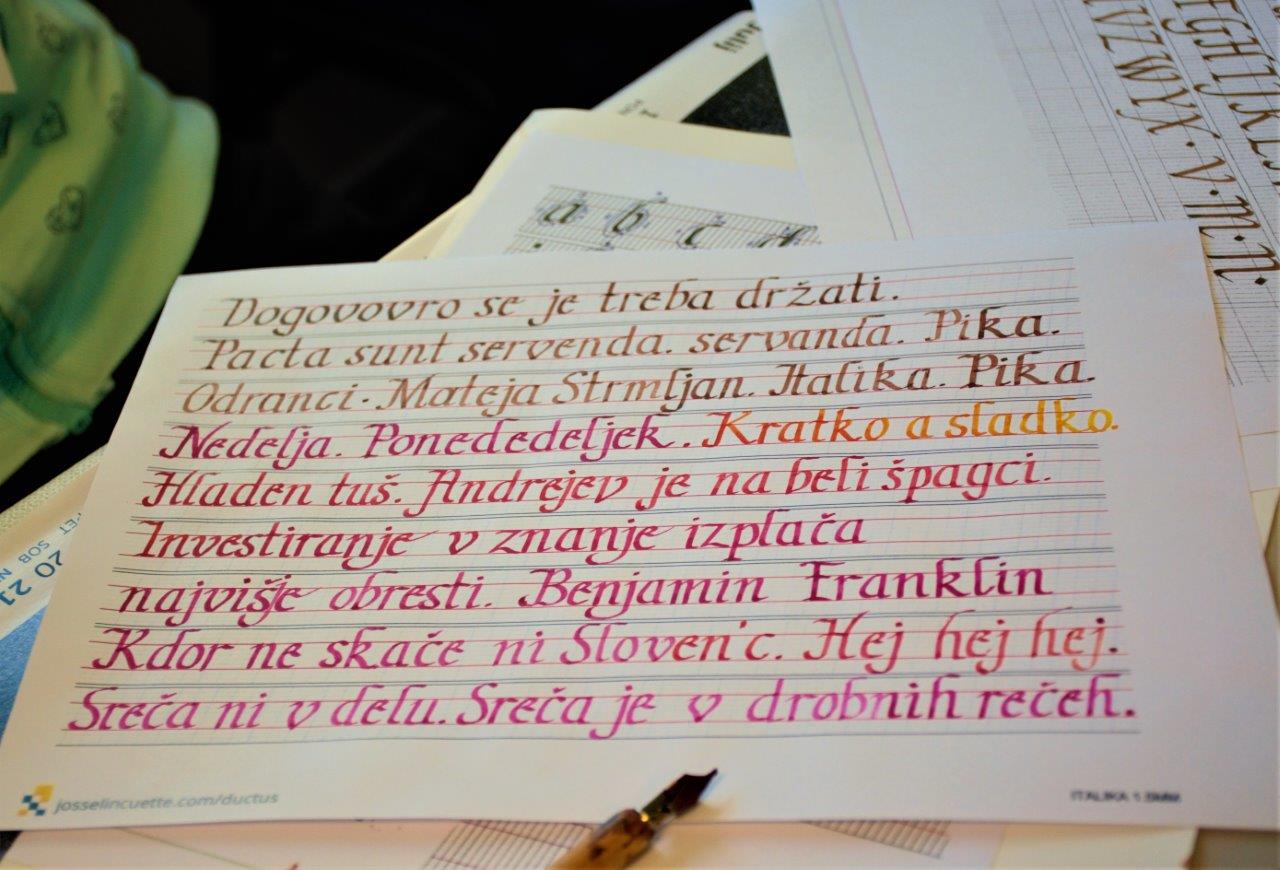 Julij
FGHIJKLS
UVZWYX·V·M·N·
a b c d
Dogovovro se je treba držati.
Pacta sunt servenda. servanda. Pika.
Odranci· Mateja Strmljan. Italika. Pika.
Nedelja. Ponededeljek. Kratko a sladko.
Hladen tuš. Andrejev je na beli špagci.
Investiranje v znanje izplača
najvišje obresti. Benjamin Franklin
Kdor ne skače ni Sloven'c. Hej hej hej.
Sreča ni v delu. Sreča je v drobnih rečeh.
PET SOB
20 21
josselincuette.com/ductus
ITALIKA 1.5MM